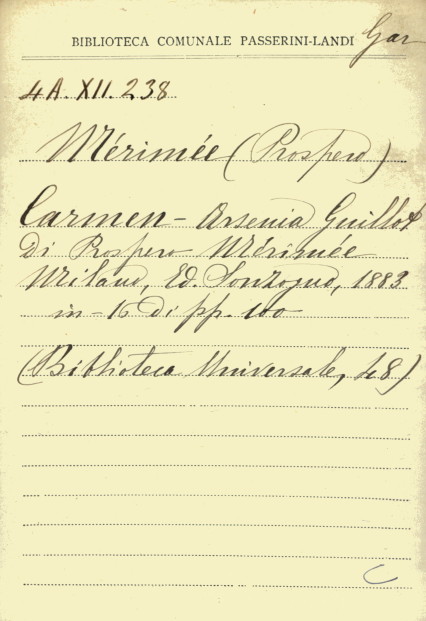 BIBLIOTECA COMUNALE PASSERINI-LANDI Gar
4A. XII. 238
Mérimée (Prospero)
Carmen - Arsenia Guillot
Di Prospero Mérimée
Milano, Ed. Sonzogno, 1883
in-16 di pp. 100
(Biblioteca Universale, 48)
C